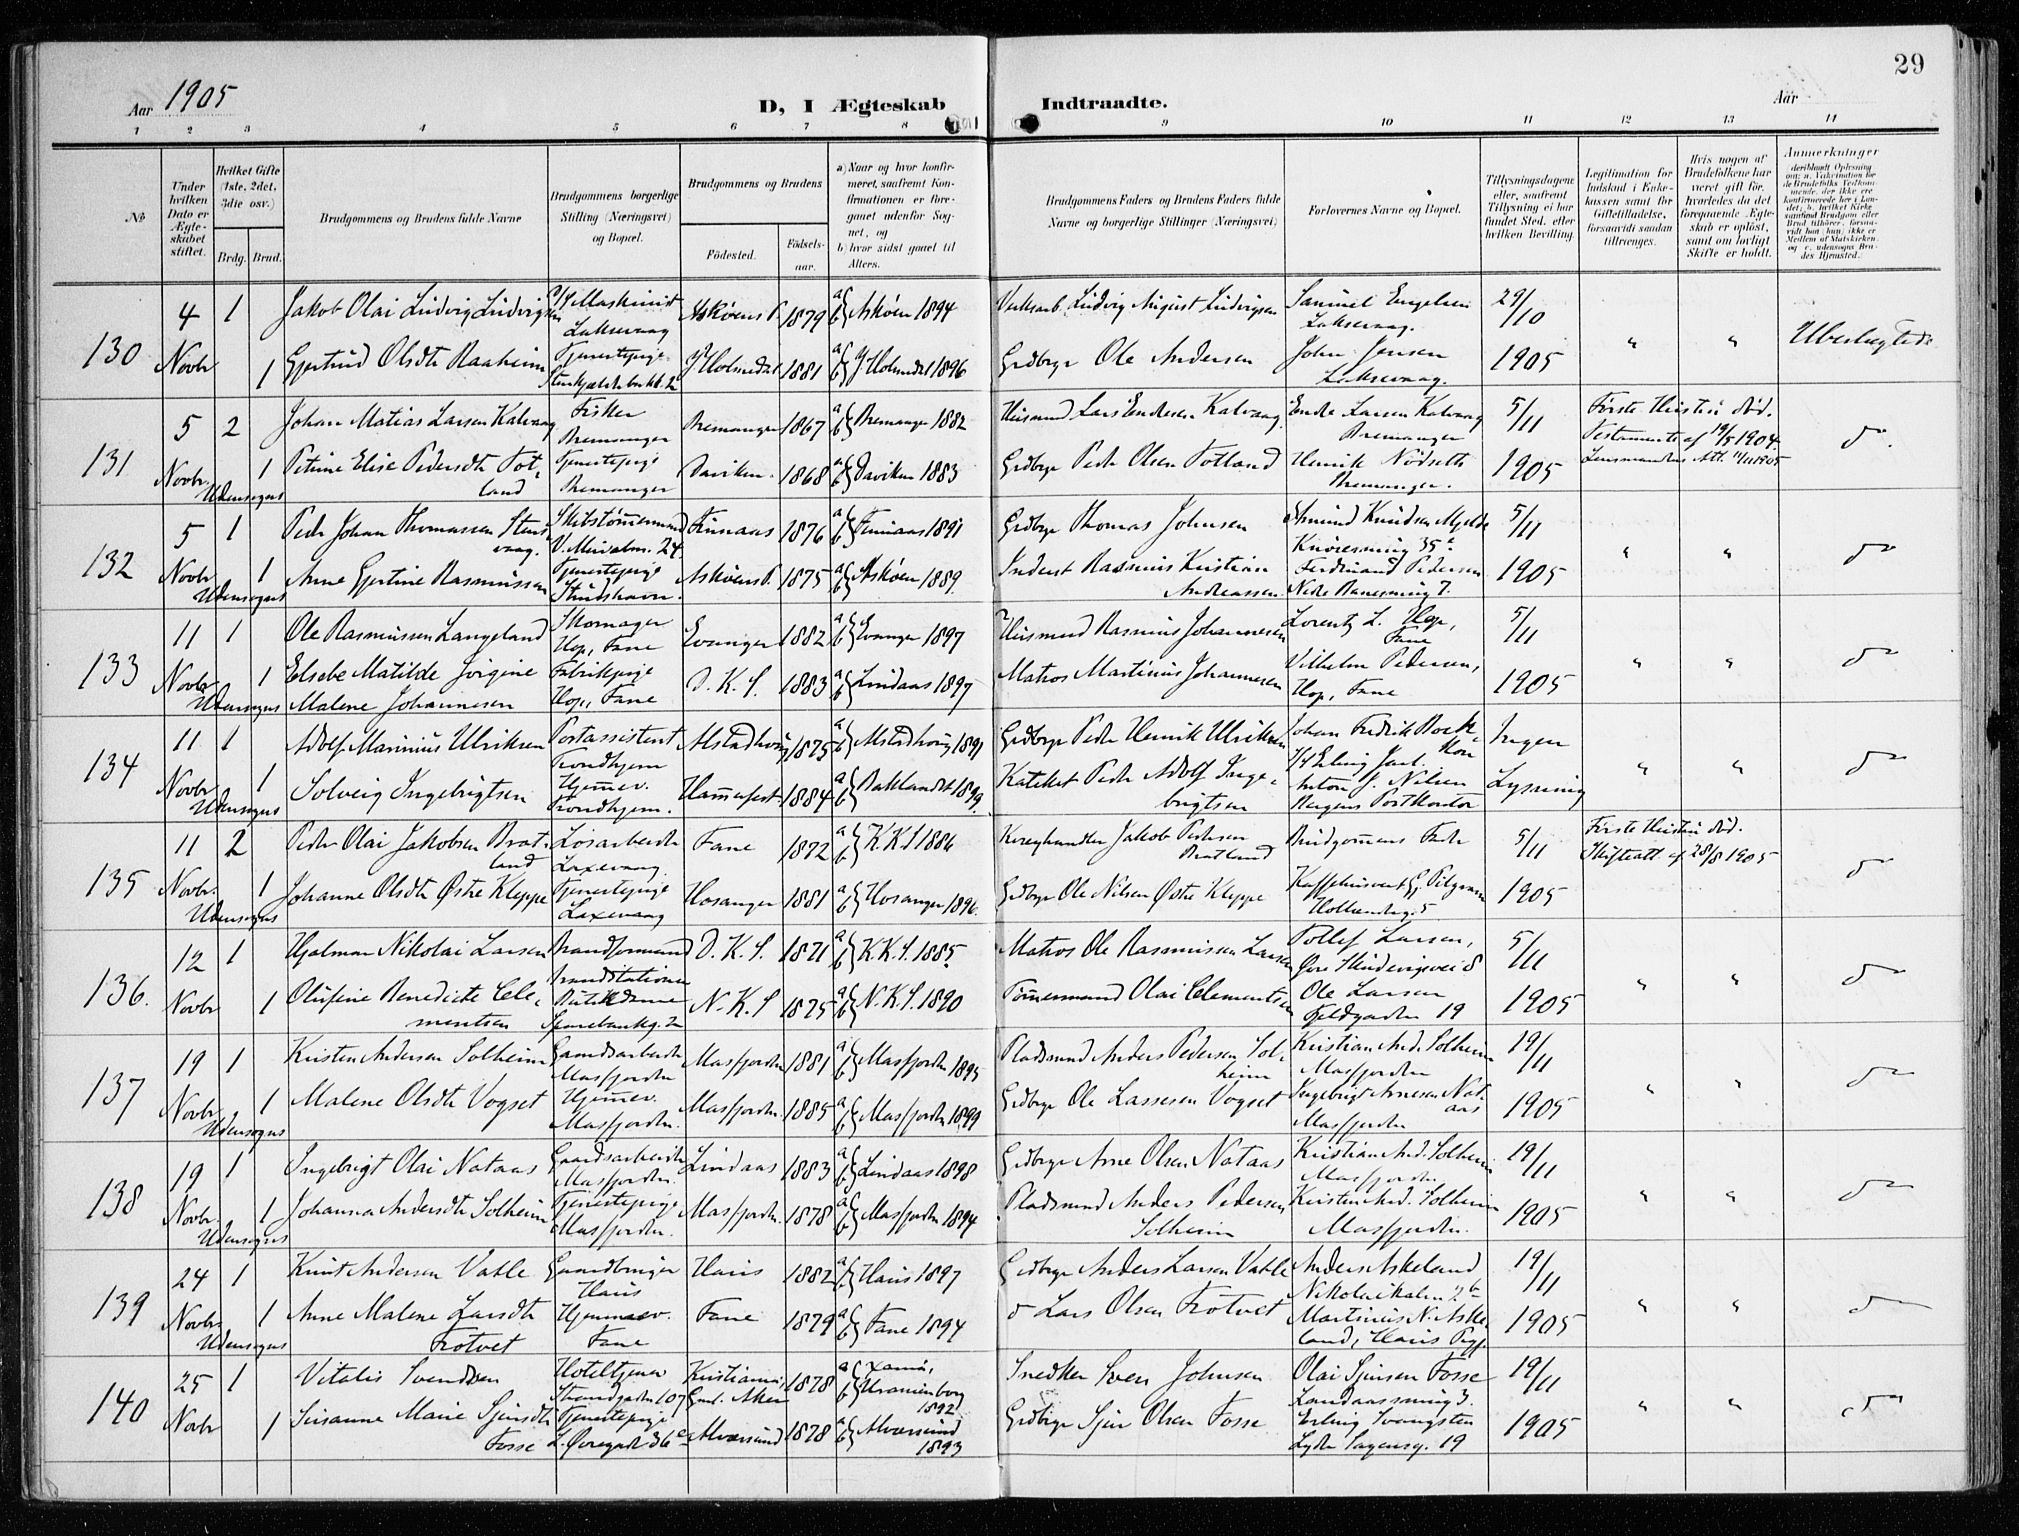 29
Aar 1905
D, I Ægteskab Indtraadte.
Aar
1 2 3 4 5 6 7 8 9 10 11 12 13 14
No
Under hvilken Dato er Ægteskabet stiftet.
Hvilket Gifte (1ste, 2det, 3die osv.)
Brdg. Brud.
Brudgommens og Brudens fulde Navne
Brudgommens borgerlige Stilling (Næringsvei) og Bopæl.
Brudgommens og Brudens
Fødested.
Fødselsaar.
a) Naar og hvor konfirmeret, saafremt Konfirmationen er foregaaet udenfor Sognet, og
b) hvor sidst gaaet til Alters.
Brudgommens Faders og Brudens Faders fulde Navne og borgerlige Stillinger (Næringsvei)
Forlovernes Navne og Bopæl.
Tillysningsdagene eller, saafremt Tillysning ei har fundet Sted, efter hvilken Bevilling.
Legitimation for Indskud i Enkekassen samt for Giftetilladelse, forsaavidt saadan tiltrænges.
Hvis nogen af Brudefolkene har været gift før, hvorledes da det foregaaende Ægteskab er opløst, samt om lovligt Skifte er holdt.
Anmerkninger
130
4 Novbr 1 Jakob Olai Ludvig Ludvigsen Maskinist Laksevaag Askøens P. 1879 a b Askøen 1894 Ludvig August Ludvigsen Samuel Engelsen Laksevaag. 29/10 1905 " " Ubeslægtede
1 Gjertrud Olsdtr Raaheim Tjenestepige Y. Holmedal 1881 a b Y. Holmedal 1896 Grdbrgr Ole Andersen John Jensen Laksevaag.
131
5 Novbr. 2 Johan Matias Larsen Kalvaag Fisker Bremanger Bremanger 1867 a b Bremanger 1882 Husmand Lars Endresen Kalvaag Endre Larsen Kalvaag Bremanger 5/11 1905 Første Hustru død. Testamente af 19/5 1904. Lensmandens Att. 11/11 1905 do
Udensogns 1 Petrine Elise Pedersdtr Totland Tjenestepige Bremanger Daviken 1868 a b Daviken 1883 Grdbrgr Peder Olsen Totland Henrik Nødseth Bremanger.
132
5 Novbr 1 Peder Johan Thomassen Stensvaag. Skibstømmermand 24 Finnaas 1876 a b Finnaas 1891 Grdbrgr Thomas Johnsen Amund Knudsen Mjelde 35a 5/11 1905 " " do
Udensogns 1 Anne Gjertine Rasmussen Tjenestepige Askøens P. 1875 a b Askøen 1889. Inderst Rasmus Kristian Andreassen Ferdinand Pedersen 7.
133
11 Novbr 1 Ole Rasmussen Langeland Skomager Hop, Fane Evanger 1882 a b Evanger 1897 Husmand Rasmus Johannesen Lorentz L. Hop, Fane 5/11 1905 " " do
Udensogns 1 Elsebe Matilde Jørgine Malene Johannesen Fabrikpige Hop, Fane D. K. S. 1883 a b Lindaas 1897 Matros Martinus Johannesen Vilhelm Pedersen, Hop, Fane
134
11 Novbr 1 Adolf Marinius Ulriksen Postassistent Trondhjem Alstadhoug 1875 a b Alstadhoug 1891 Grdbrgr Peder Henrik Ulriksen Johan Fredrik Erling Jarl. Ingen Lysning " " do
Udensogns 1 Solveig Ingebrigtsen Hjemmev. Trondhjem. Hammerfest 1884 a b Baklandet 1899. Kateket Peder Adolf Ingebrigtsen Anton J. Nilsen Bergens Postkontor
135
11 Novbr. 2 Peder Olai Jakobsen Bratland Løsarbeider Laxevaag. Fane 1872 a b K.K.S 1886 Jakob Pedersen Bratland Brudgommens Fader 5/11 1905 Første Hustru død. Skifteatt. af 28/8 1905 do
Udensogns 1 Johanne Olsdtr Østre Kleppe Tjenestepige Laxevaag Hosanger 1881 a b Hosanger 1896. Grdbrgr Ole Nilsen Østre Kleppe 5
136.
12 Novbr 1 Hjalmar Nikolai Larsen Brandformand Brandstationen D. K. S. 1871 a b K.K.S. 1885. Matros Ole Rasmussen Larsen Tollef Larsen, 8 5/11 1905 " " do
1 Olufine Benedicte Clementsen Butikdame N. K. S 1875 a b N.K.S. 1890 Tømmermand Olai Clementsen Ole Larsen 19
137
19 Novbr 1 Kristen Andersen Solheim Gaardsarbeider Masfjorden Masfjorden 1881 a b Masfjorden 1895 Pladsmand Anders Pedersen Solheim Kristian And. Solheim Masfjorden 19/11 1905 " " do
Udensogns 1 Malene Olsdtr Vogset Hjemmev. Masfjorden. Masfjorden. 1885 a b Masfjorden 1899 Grdbrgr Ole Lassesen Vogset Ingebrigt Arnesen Nataas Masfjorden
138
19 Novbr. 1 Ingebrigt Olai Nataas Gaardsarbeider Masfjorden. Lindaas 1883 a b Lindaas 1898 Grdbrgr Arne Olsen Nataas Kristian And. Solheim Masfjorden 19/11 1905 " " do
Udensogns 1 Johanna Andersdtr Solheim Tjenestepige Masfjorden. Masfjorden. 1878 a b Masfjorden 1894 Pladsmand Anders Pedersen Solheim Kristen And. Solheim Masfjorden.
139
24 Novbr. 1 Knut Andersen Vatle Gaardbruger Haus Haus 1882 a b Haus 1897 Grdbrgr Anders Larsen Vatle Anders Askeland 19/11 1905 " " do
Udensogns 1 Anne Malene Larsdtr Trotvet Hjemmev. Fane Fane 1879 a b Fane 1894 do Lars Olsen Trotvet Martinus N. Askeland, Haus Pgj.
140
25 Novbr 1 Vitalis Svendsen Hoteltjener Strandgaden 107 Kristiania, Aker 1878 a b Uranienborg 1892 Snedker Sven Johnsen Olai Sjursen Fosse 3. 19/11 1905 " " do
1 Susanne Marie Sjursdtr Fosse Tjenestepige Alversund 1878 a b Alversund 1893 Grdbrgr Sjur Olsen Fosse Erling Svangsten Lyder Sagensg. 19